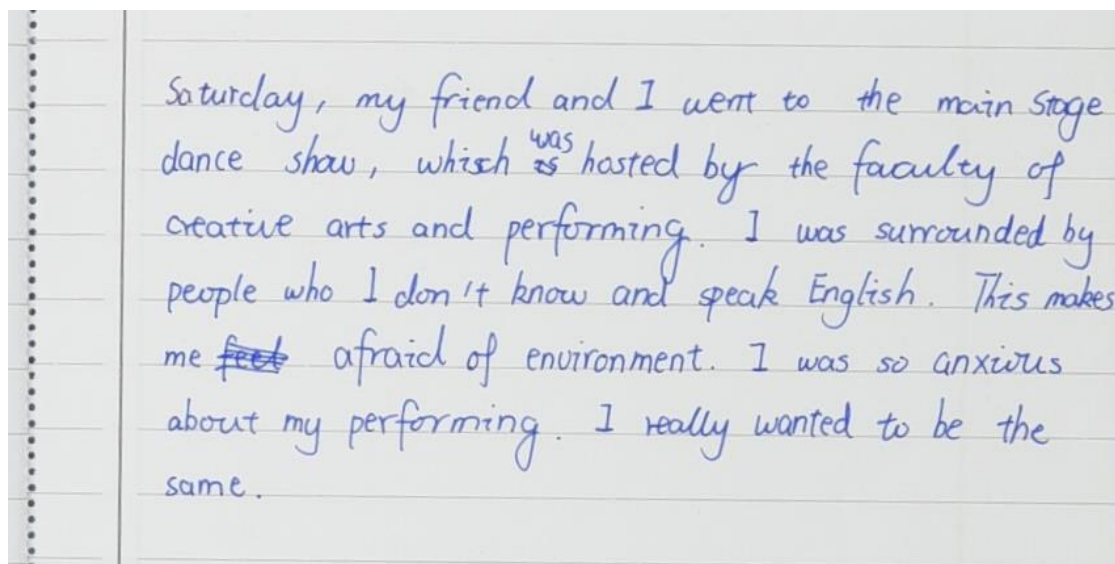 Saturday, my friend and I went to the main Stage
dance show, which was hosted by the faculty of
creative arts and performing. I was surrounded by
people who I don't know and speak English. This makes
me afraid of environment. I was so anxious
about my performing. I really wanted to be the
same.